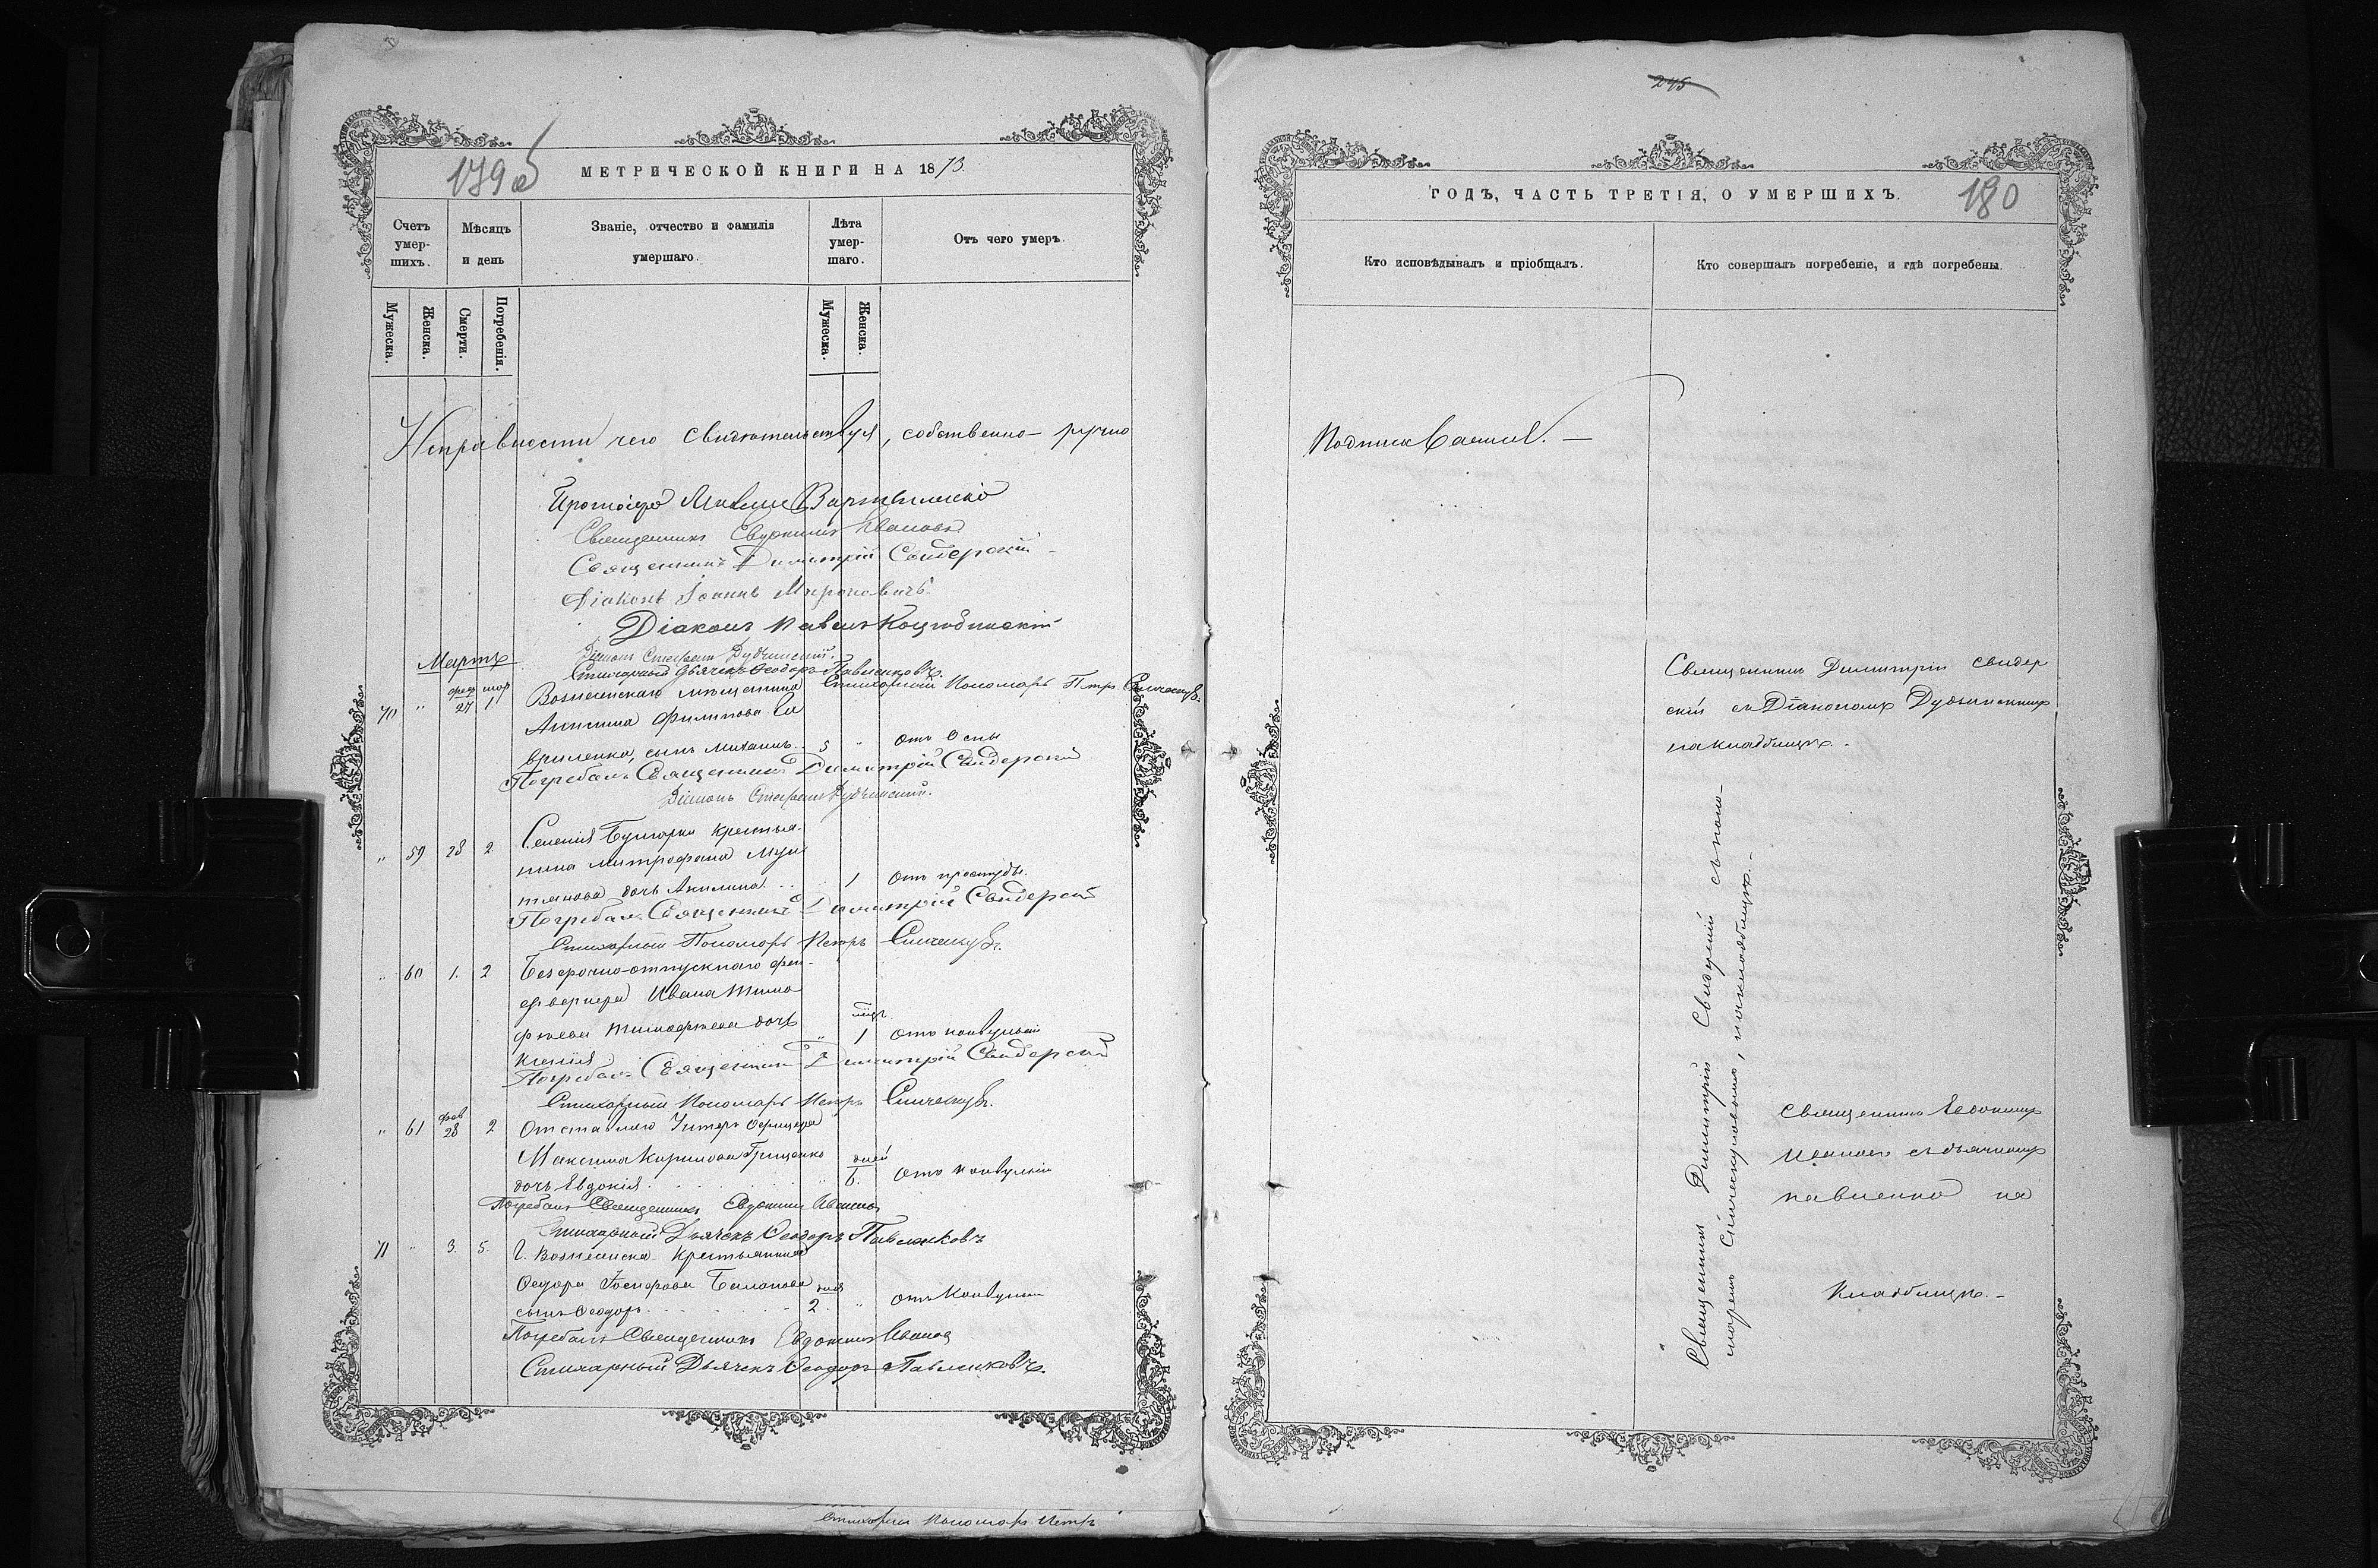 179 об
МЕТРИЧЕСКОЙ КНИГИ НА 1873.
Счетъ умер-шихъ.
Мѣсяцъ и день
Званіе, отчество и фамилія умершаго.
Лѣта умер-шаго.
Отъ чего умеръ.
Мужеска.
Женска.
Смерти.
Погребенія.
Мужеска.
Женска.
чего свидѣтельствуя, собственно-ручно
Протоіерей
Священникъ Евдокимъ Ивановъ
Священникъ Димитрій Свидерскій
Діаконъ Іоаннъ Мироновичъ
Діаконъ Павелъ Коцюбинскій
Діаконъ Стефанъ Дудчинскій.
Мартъ
Стихарный Дьячекъ Ѳеодоръ Павленковъ.
Стихарный Пономарь Петръ
70 " фев 27 мар 1 Вознесенскаго мѣщанина
Акима Филипова Га
вриленка, сынъ Михаилъ . 5 " отъ Оспы
Погребалъ Священникъ Димитрій Свидерскій
Діаконъ Стефанъ Дудчинскій.
" 59 28 2 Селенія Булгарки крестья-
нина Митрофана
дочь Акилина . . " 1 Отъ простуды.
Погребалъ Священникъ Димитрій Свидерскій
Стихарный Пономарь Петръ
" 60 1. 2 Безсрочно-отпускнаго фей-
ерверкера Ивана Тимо
фѣева Тимофѣева дочь " 1 отъ конвульсій
Ксенія
Погребалъ Священникъ Димитрій Свидерскій
Стихарный Пономарь Петръ
" 61 фев 28 2 Отставнаго Унтеръ Офицера
Максима Кирилова Грищенко дней
дочь Евдокія . . . " 6. отъ конвульсій
Погребалъ Священникъ Евдокимъ Ивановъ
Стихарный Дьячекъ Ѳеодоръ Павленковъ
71 " 3. 5. Г. Вознесенска крестьянина
Ѳедора Іосифова дня
сынъ Ѳеодоръ . . . 2 " отъ Конвульсій
Погребалъ Священникъ Евдокимъ Ивановъ
Стихарный Дьячекъ Ѳеодоръ Павленковъ.
Стихарный Пономарь Петръ
245
ГОДЪ, ЧАСТЬ ТРЕТІЯ, О УМЕРШИХЪ.
180
Кто исповѣдывалъ и пріобщалъ.
Кто совершалъ погребеніе, и гдѣ погребены.
Священникъ Димитрій Свидер
скій съ Діакономъ Дудчинскимъ
на кладбищѣ.-
Священникъ Димитрій Свидерскій съ поно-
маремъ на кладбищѣ.-
Священникъ Евдокимъ
Ивановъ съ дьячкомъ
Павленко на
Кладбищѣ.-